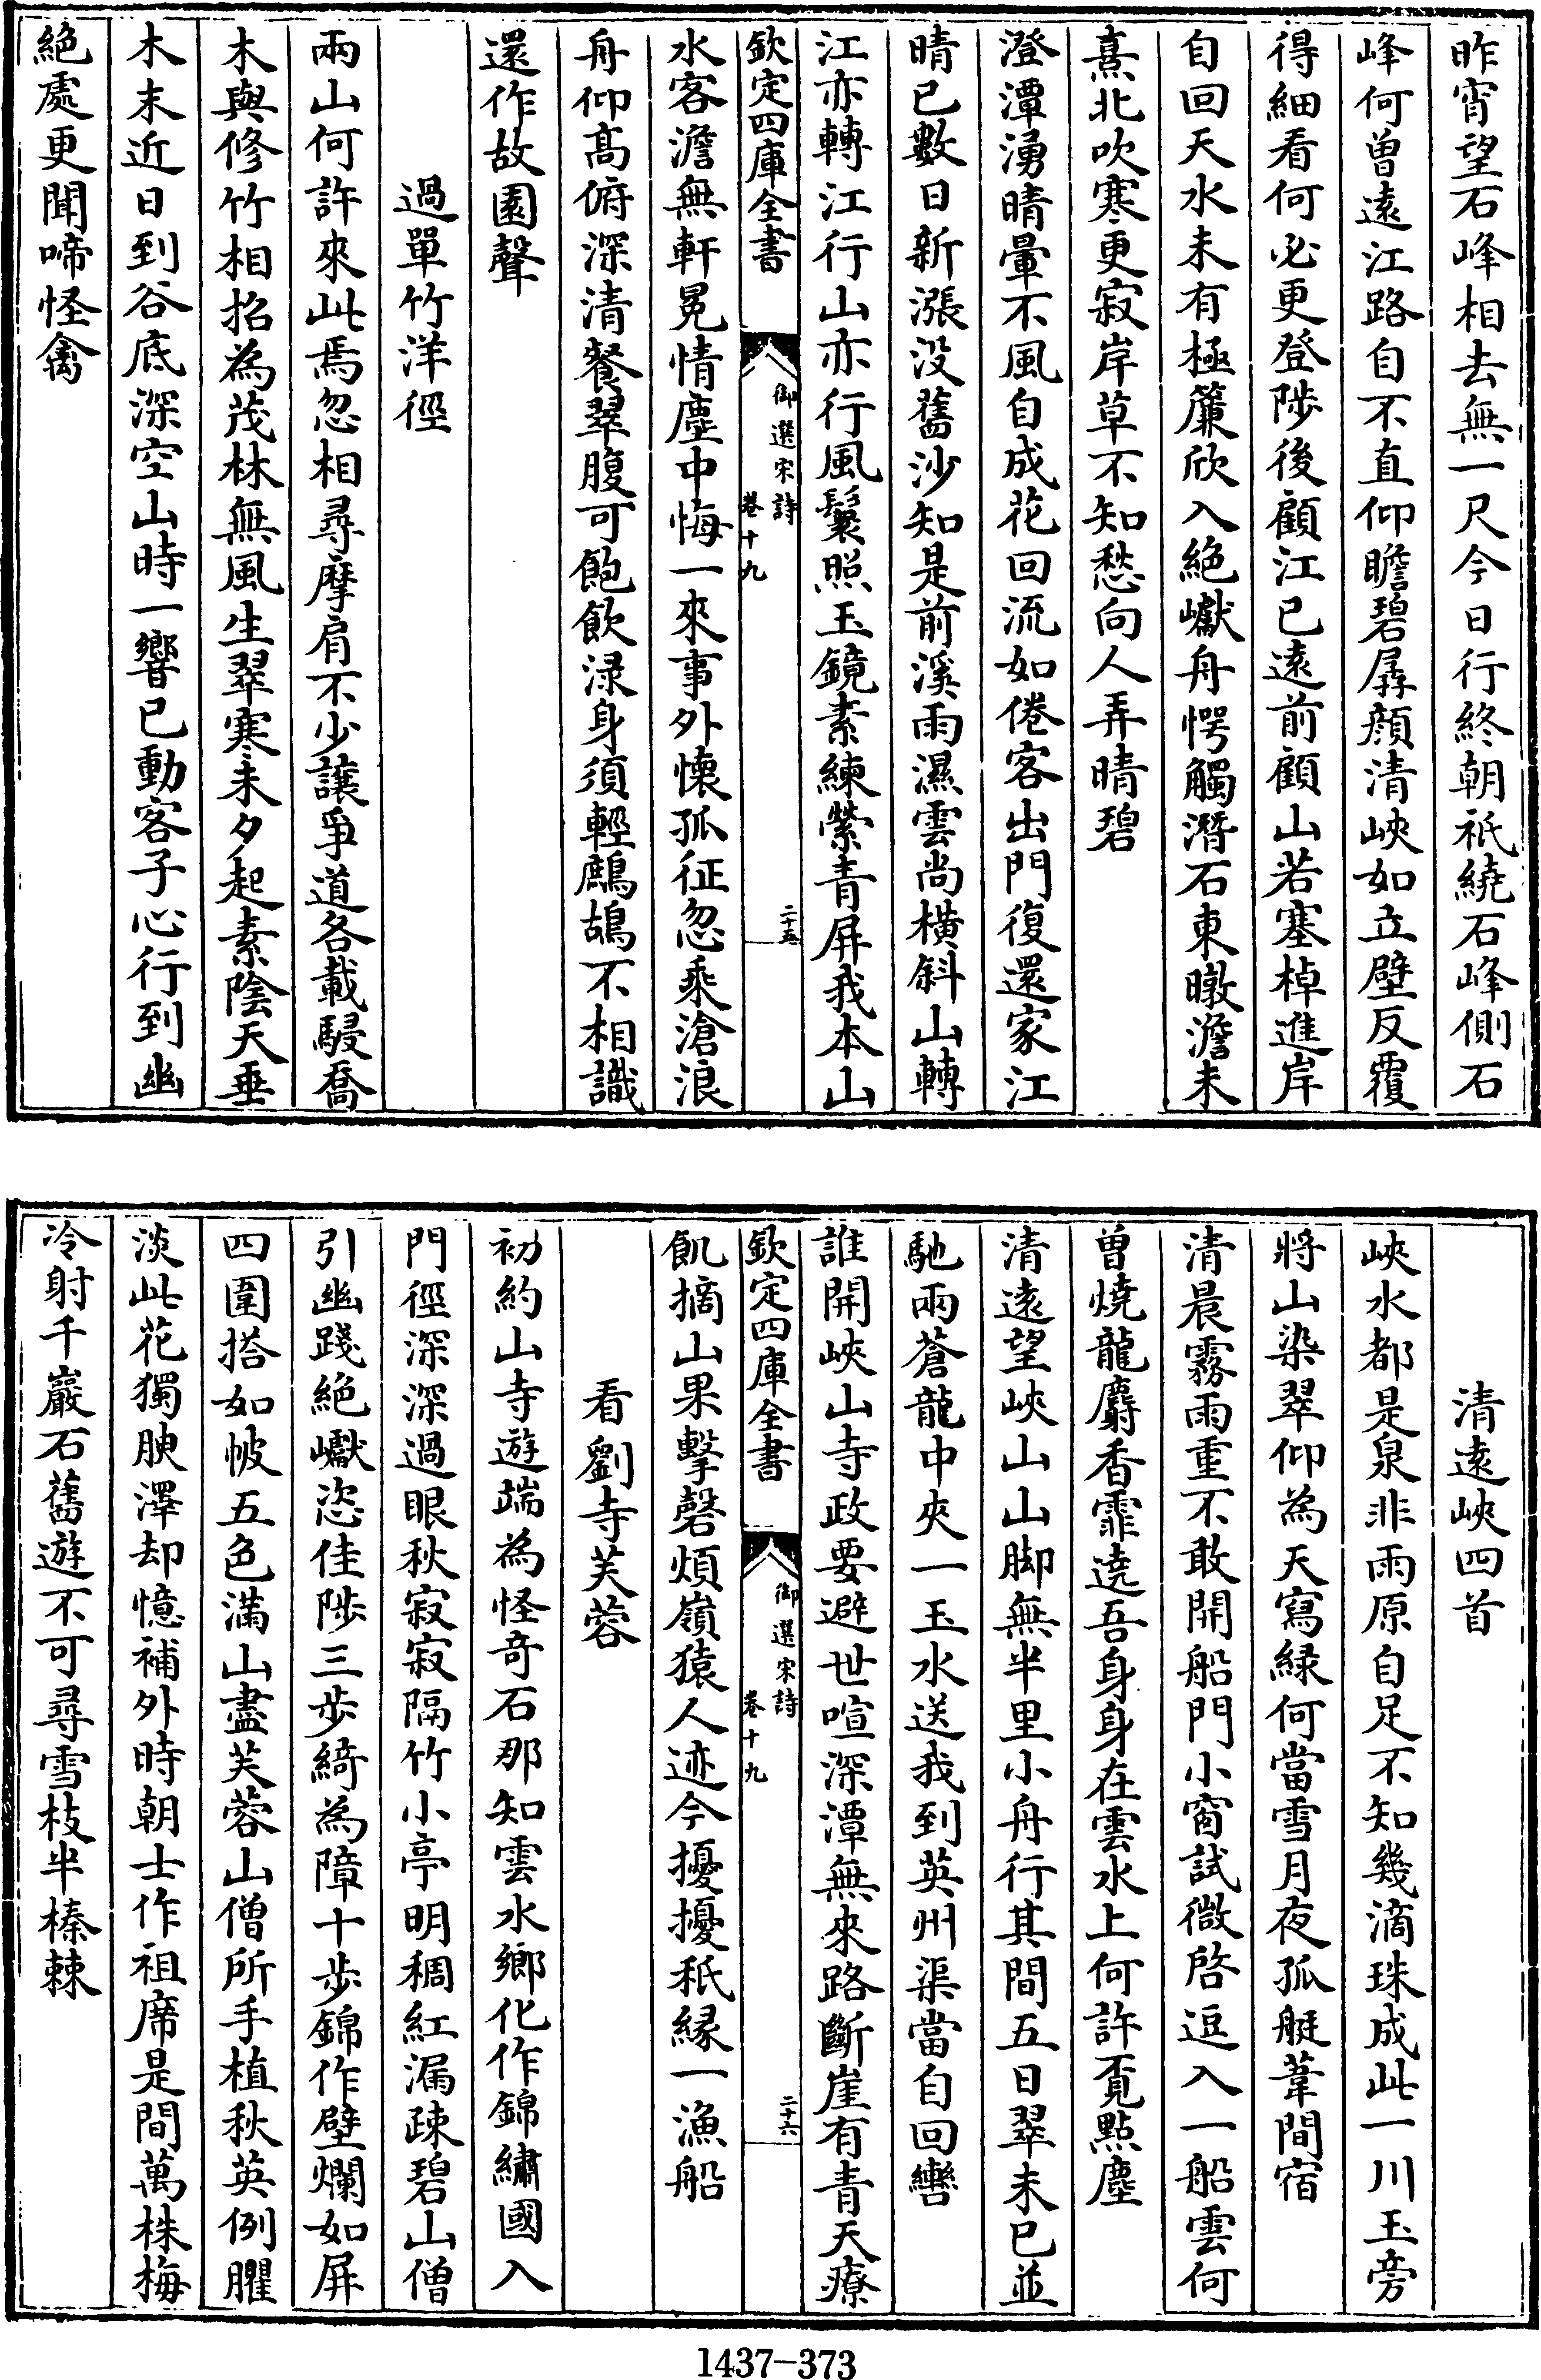 昨宵望石峰相去無一尺今日行終朝祇繞石峰側石
峰何曾遠江路自不直仰瞻碧孱顔清峽如立壁反覆
得細看何必更登陟後顧江已遠前顧山若塞棹進岸
自回天水未有極簾欣入絶巘舟愕觸潛石東暾澹未
熹北吹寒更寂岸草不知愁向人弄晴碧
澄潭湧晴暈不風自成花回流如倦客出門復還家江
晴已數日新漲没舊沙知是前溪雨濕雲尚横斜山轉
江亦轉江行山亦行風鬟照玉鏡素練縈青屏我本山
欽定四庫全書
御選宋詩
卷十九
二十五
水客澹無軒冕情塵中悔一來事外懐孤征忽乘滄浪
舟仰高俯深清餐翠腹可飽飲渌身須輕鷓鴣不相識
還作故園聲
過單竹洋徑
兩山何許來此焉忽相尋摩肩不少讓爭道各載駸喬
木與修竹相招為茂林無風生翠寒未夕起素陰天垂
木末近日到谷底深空山時一響已動客子心行到幽
絶處更聞啼怪禽
清遠峽四首
峽水都是泉非雨原自足不知幾滴珠成此一川玉旁
將山染翠仰為天寫緑何當雪月夜孤艇葦間宿
清晨霧雨重不敢開船門小窗試微啓逗入一船雲何
曾燒龍麝香霏遶吾身身在雲水上何許覔點塵
清遠望峽山山脚無半里小舟行其間五日翠未已並
馳兩蒼龍中夾一玉水送我到英州渠當自回轡
誰開峽山寺政要避世喧深潭無來路斷崖有青天療
欽定四庫全書
御選宋詩
卷十九
二十六
飢摘山果擊磬煩嶺猿人迹今擾擾秖縁一漁船
看劉寺芙蓉
初約山寺遊端為怪奇石那知雲水鄉化作錦繡國入
門徑深深過眼秋寂寂隔竹小亭明稠紅漏疎碧山僧
引幽踐絶巘恣佳陟三步綺為障十步錦作壁爛如屏
四圍搭如帔五色滿山盡芙蓉山僧所手植秋英例臞
淡此花獨腴澤却憶補外時朝士作祖席是間萬株梅
冷射千巖石舊遊不可尋雪枝半榛棘
1437-373